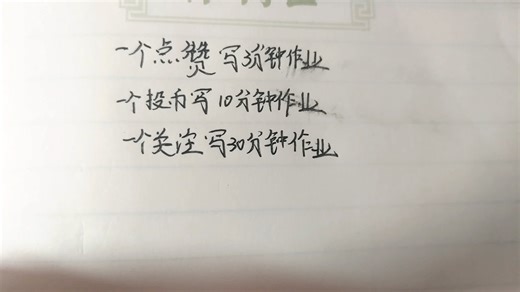 一个点赞写3分钟作业
一个投币写10分钟作业
一个关注写30分钟作业